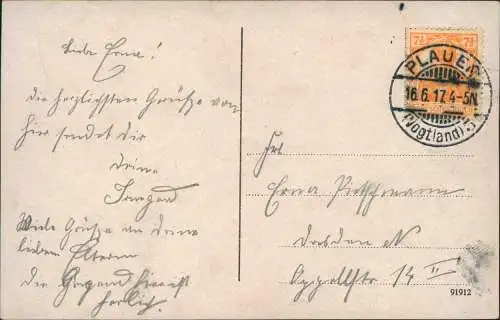 Liebe Erna!
Die herzlichsten Grüße von
hier sendet dir
deine
Irmgard
Viele Grüße an deine
lieben Eltern
die Gegend hier ist
herrlich
7½ 7½
PLAUEN
16.6.17.4-5N.
(Vogtland)
Frl.
Erna
Dresden N
14 II
91912